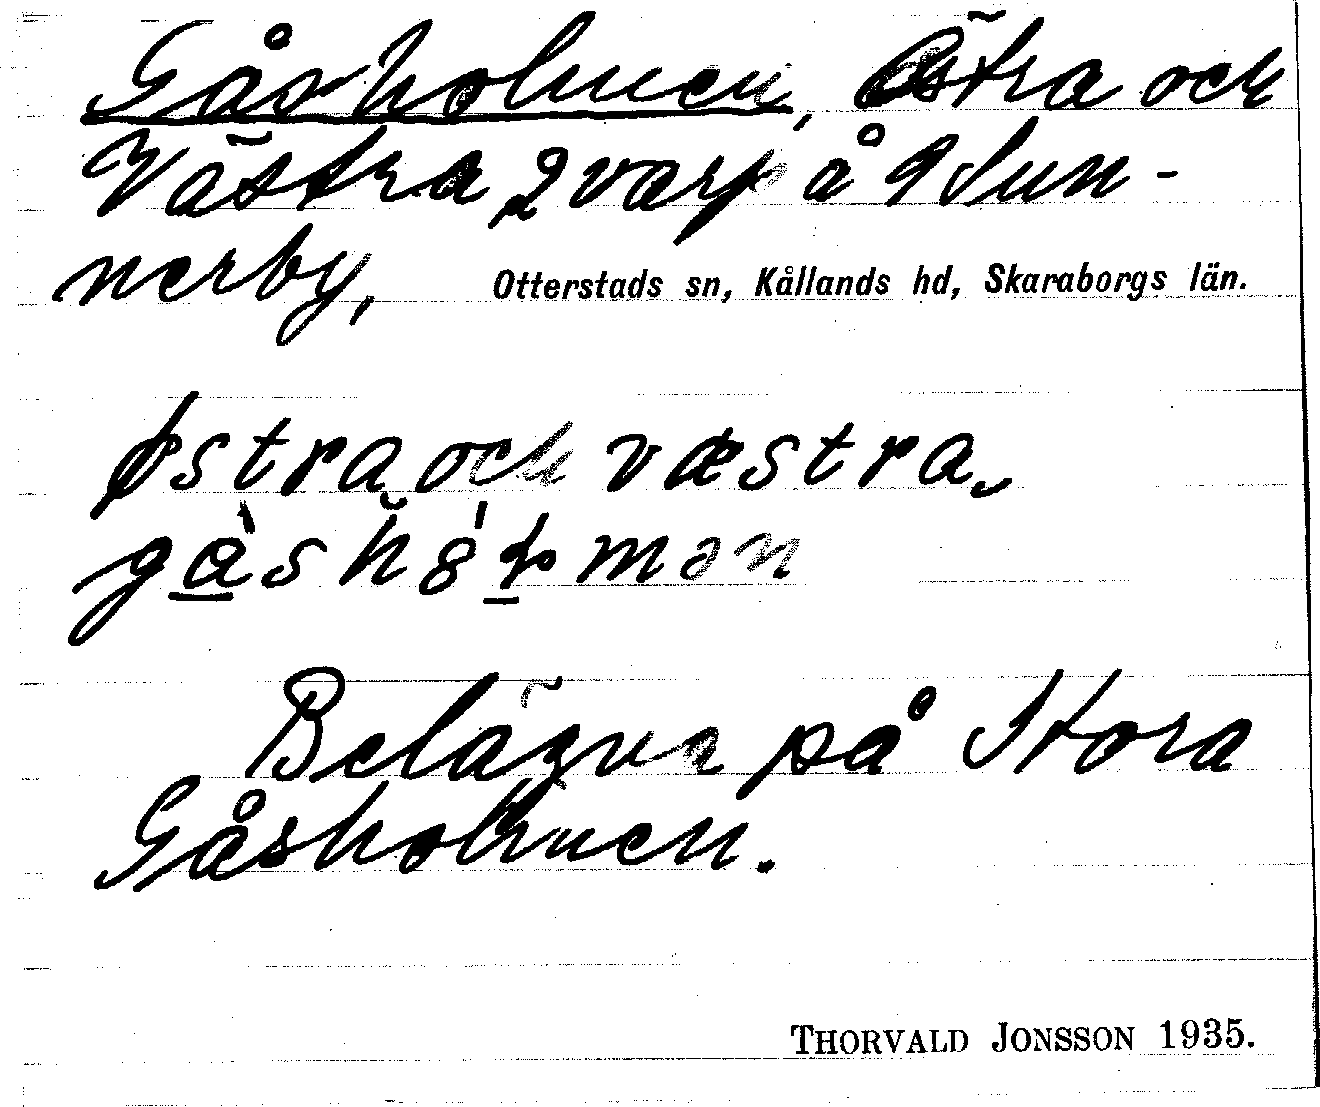 Gåsholmen, Östra och
Västra, 2 varp å 9 Sun-
nerby, Otterstads sn, Kållands hd, Skaraborgs län.
østra och væstra
Belägna på Stora
Gåsholmen.
THORVALD JONSSON 1935.